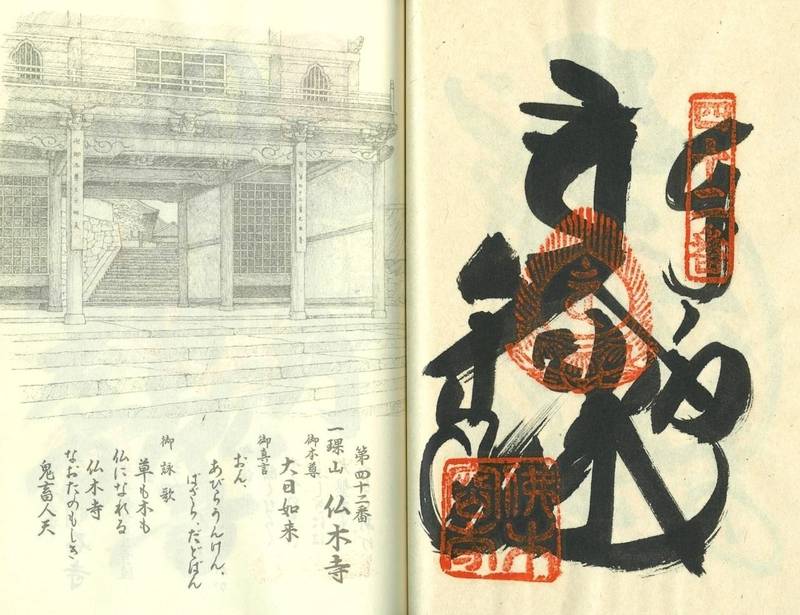 四十二番
奉納
第四十二番
一𤦲山 仏木寺
御本尊
大日如来
御真言
おん、
あびらうんけん、
ばざら、だどばん
御詠歌
草も木も
仏になれる
仏木寺
なおたのもしき
鬼畜人天